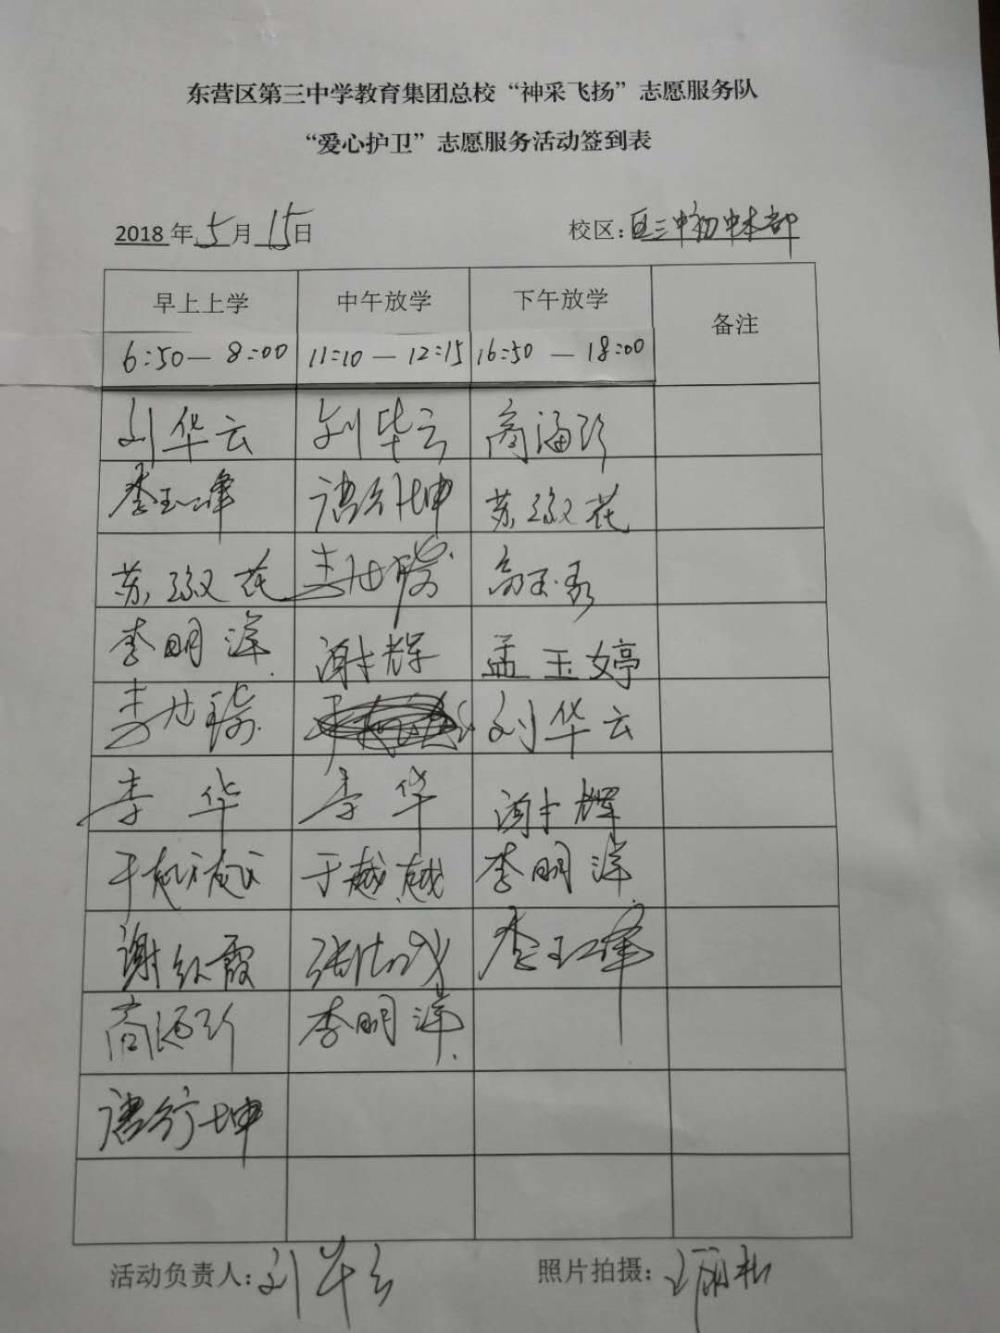 东营区第三中学教育集团总校“神采飞扬”志愿服务队
“爱心护卫”志愿服务活动签到表
2018年5月15日 校区:区三中初中本部
早上上学 中午放学 下午放学 备注
6:50—8:00 11:10—12:15 16:50—18:00
刘华云 刘华云 商海珍
李玉峰 坤 苏 花
苏 花 李 高玉
李明洋 谢辉 孟玉婷
李 刘华云
李华 李华 谢辉
于越越 于越越 李明洋
谢红霞 张 李玉峰
商海珍 李明洋
坤
活动负责人:刘华云 照片拍摄: